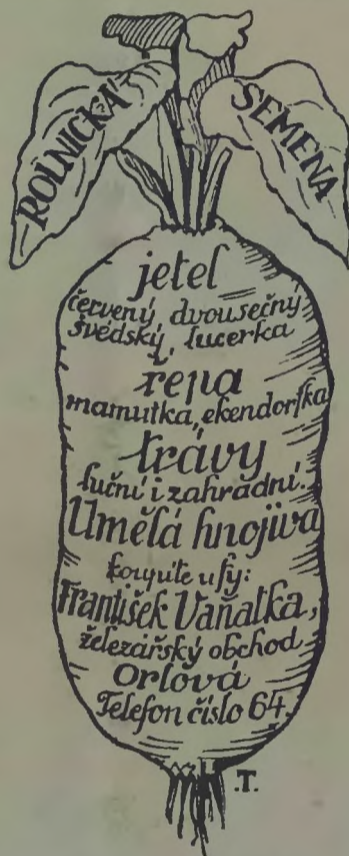 ROLNICKÁ
SEMENA
jetel
červený, dvousečný
švédský, lucerka
řepa
mamutka, ekendorfka
trávy
luční i zahradní.
Umělá hnojiva
koupíte u fy:
František Vaňatka,
železářský obchod
Orlová
Telefon číslo 64.
.T.